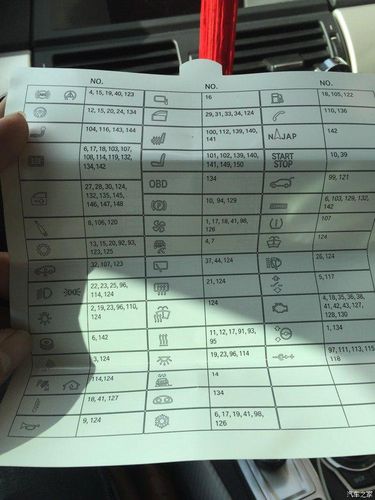 NO. NO. NO.
4, 15, 19, 40, 123
16
18, 105, 122
12, 15, 20, 24, 134
29, 31, 33, 34, 124
116, 136
104, 116, 143, 144
100, 112, 139, 140,
141
NAJAP
142
6, 17, 18, 103, 107,
108, 114, 119, 132,
134, 142
101, 102, 139, 140,
141, 149, 150
START
STOP
10, 39
OBD
134
99, 121
27, 28, 30, 124,
132, 135, 145,
146, 147, 148
10, 94, 129
6, 103, 129, 132,
142
36, 106, 120
1, 17, 18, 41, 98,
126
107
13, 15, 20, 92, 93,
123, 125
4, 7
124
32, 107, 123
37, 44, 124
26, 124
22, 23, 25, 96,
114, 124
21, 124
5, 117
2, 19, 23, 96, 110,
124
124
4, 18, 35, 36, 38,
41, 42, 43, 127,
128, 130
6, 142
11, 12, 17, 91, 93,
95
1, 134
3, 124
19, 23, 96, 114
97, 111, 113, 115,
118
114, 124
14
18, 41, 127
134
9, 124
6, 17, 19, 41, 98,
126
汽车之家